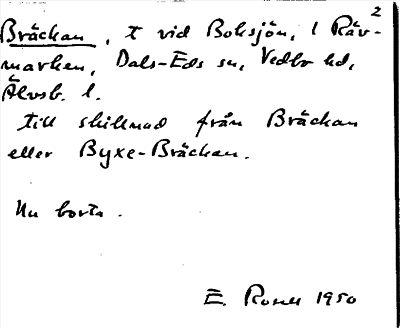 2
Bräckan, t vid Boksjön, 1 Räv-
marken, Dals-Eds sn, Vedbo hd,
Älvsb. l.
till skillnad från Bräckan
eller Byxe-Bräckan.
Nu borta.
E. Rosell 1950